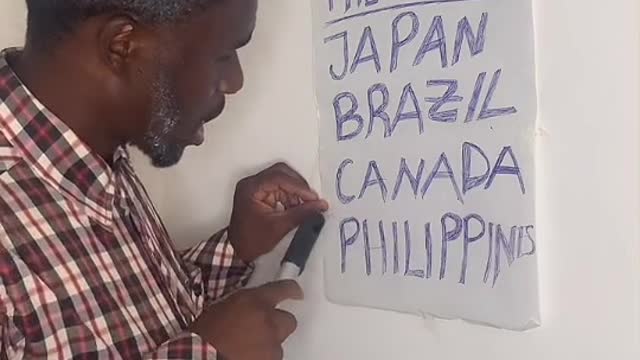 JAPAN
BRAZIL
CANADA
PHILIPPINES